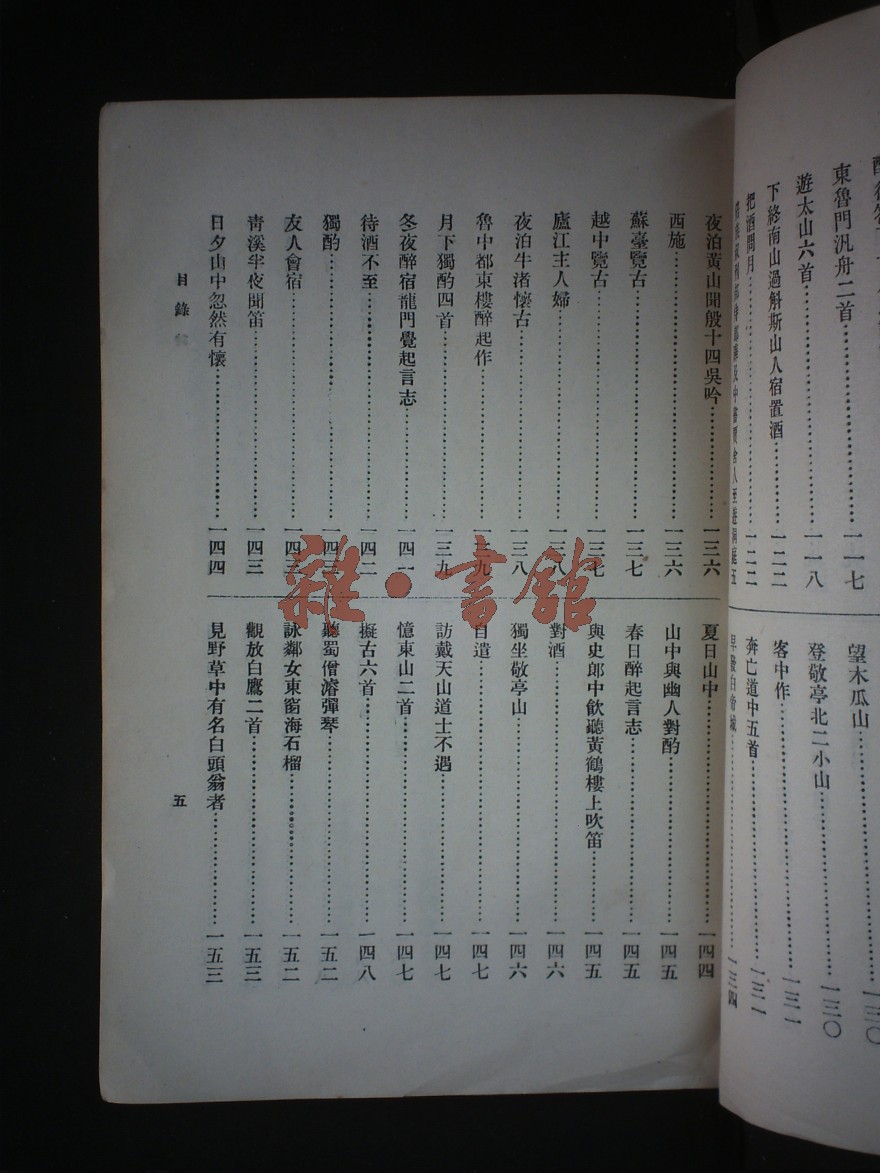 東魯門汎舟二首……一一七
遊太山六首……一一八
下終南山過斛斯山人宿置酒……一二二
把酒問月……一二二
望木瓜山……一三〇
登敬亭北二小山……一三〇
客中作……一三一
奔亡道中五首……一三一
早發白帝城……一三四
夜泊黃山聞殷十四吳吟……一三六
西施……一三六
蘇臺覽古……一三七
越中覽古……一三七
廬江主人婦……一三八
夜泊牛渚懷古……一三八
魯中都東樓醉起作……一三九
月下獨酌四首……一三九
冬夜醉宿龍門覺起言志……一四一
待酒不至……一四二
獨酌……一四三
友人會宿……一四三
青溪半夜聞笛……一四三
日夕山中忽然有懷……一四四
夏日山中……一四四
山中與幽人對酌……一四五
春日醉起言志……一四五
與史郎中飲聽黃鶴樓上吹笛……一四五
對酒……一四六
獨坐敬亭山……一四六
自遣……一四七
訪戴天山道士不遇……一四七
憶東山二首……一四七
擬古六首……一四八
聽蜀僧濬彈琴……一五二
詠鄰女東窗海石榴……一五二
觀放白鷹二首……一五三
見野草中有名白頭翁者……一五三
目錄
五
雜·書館